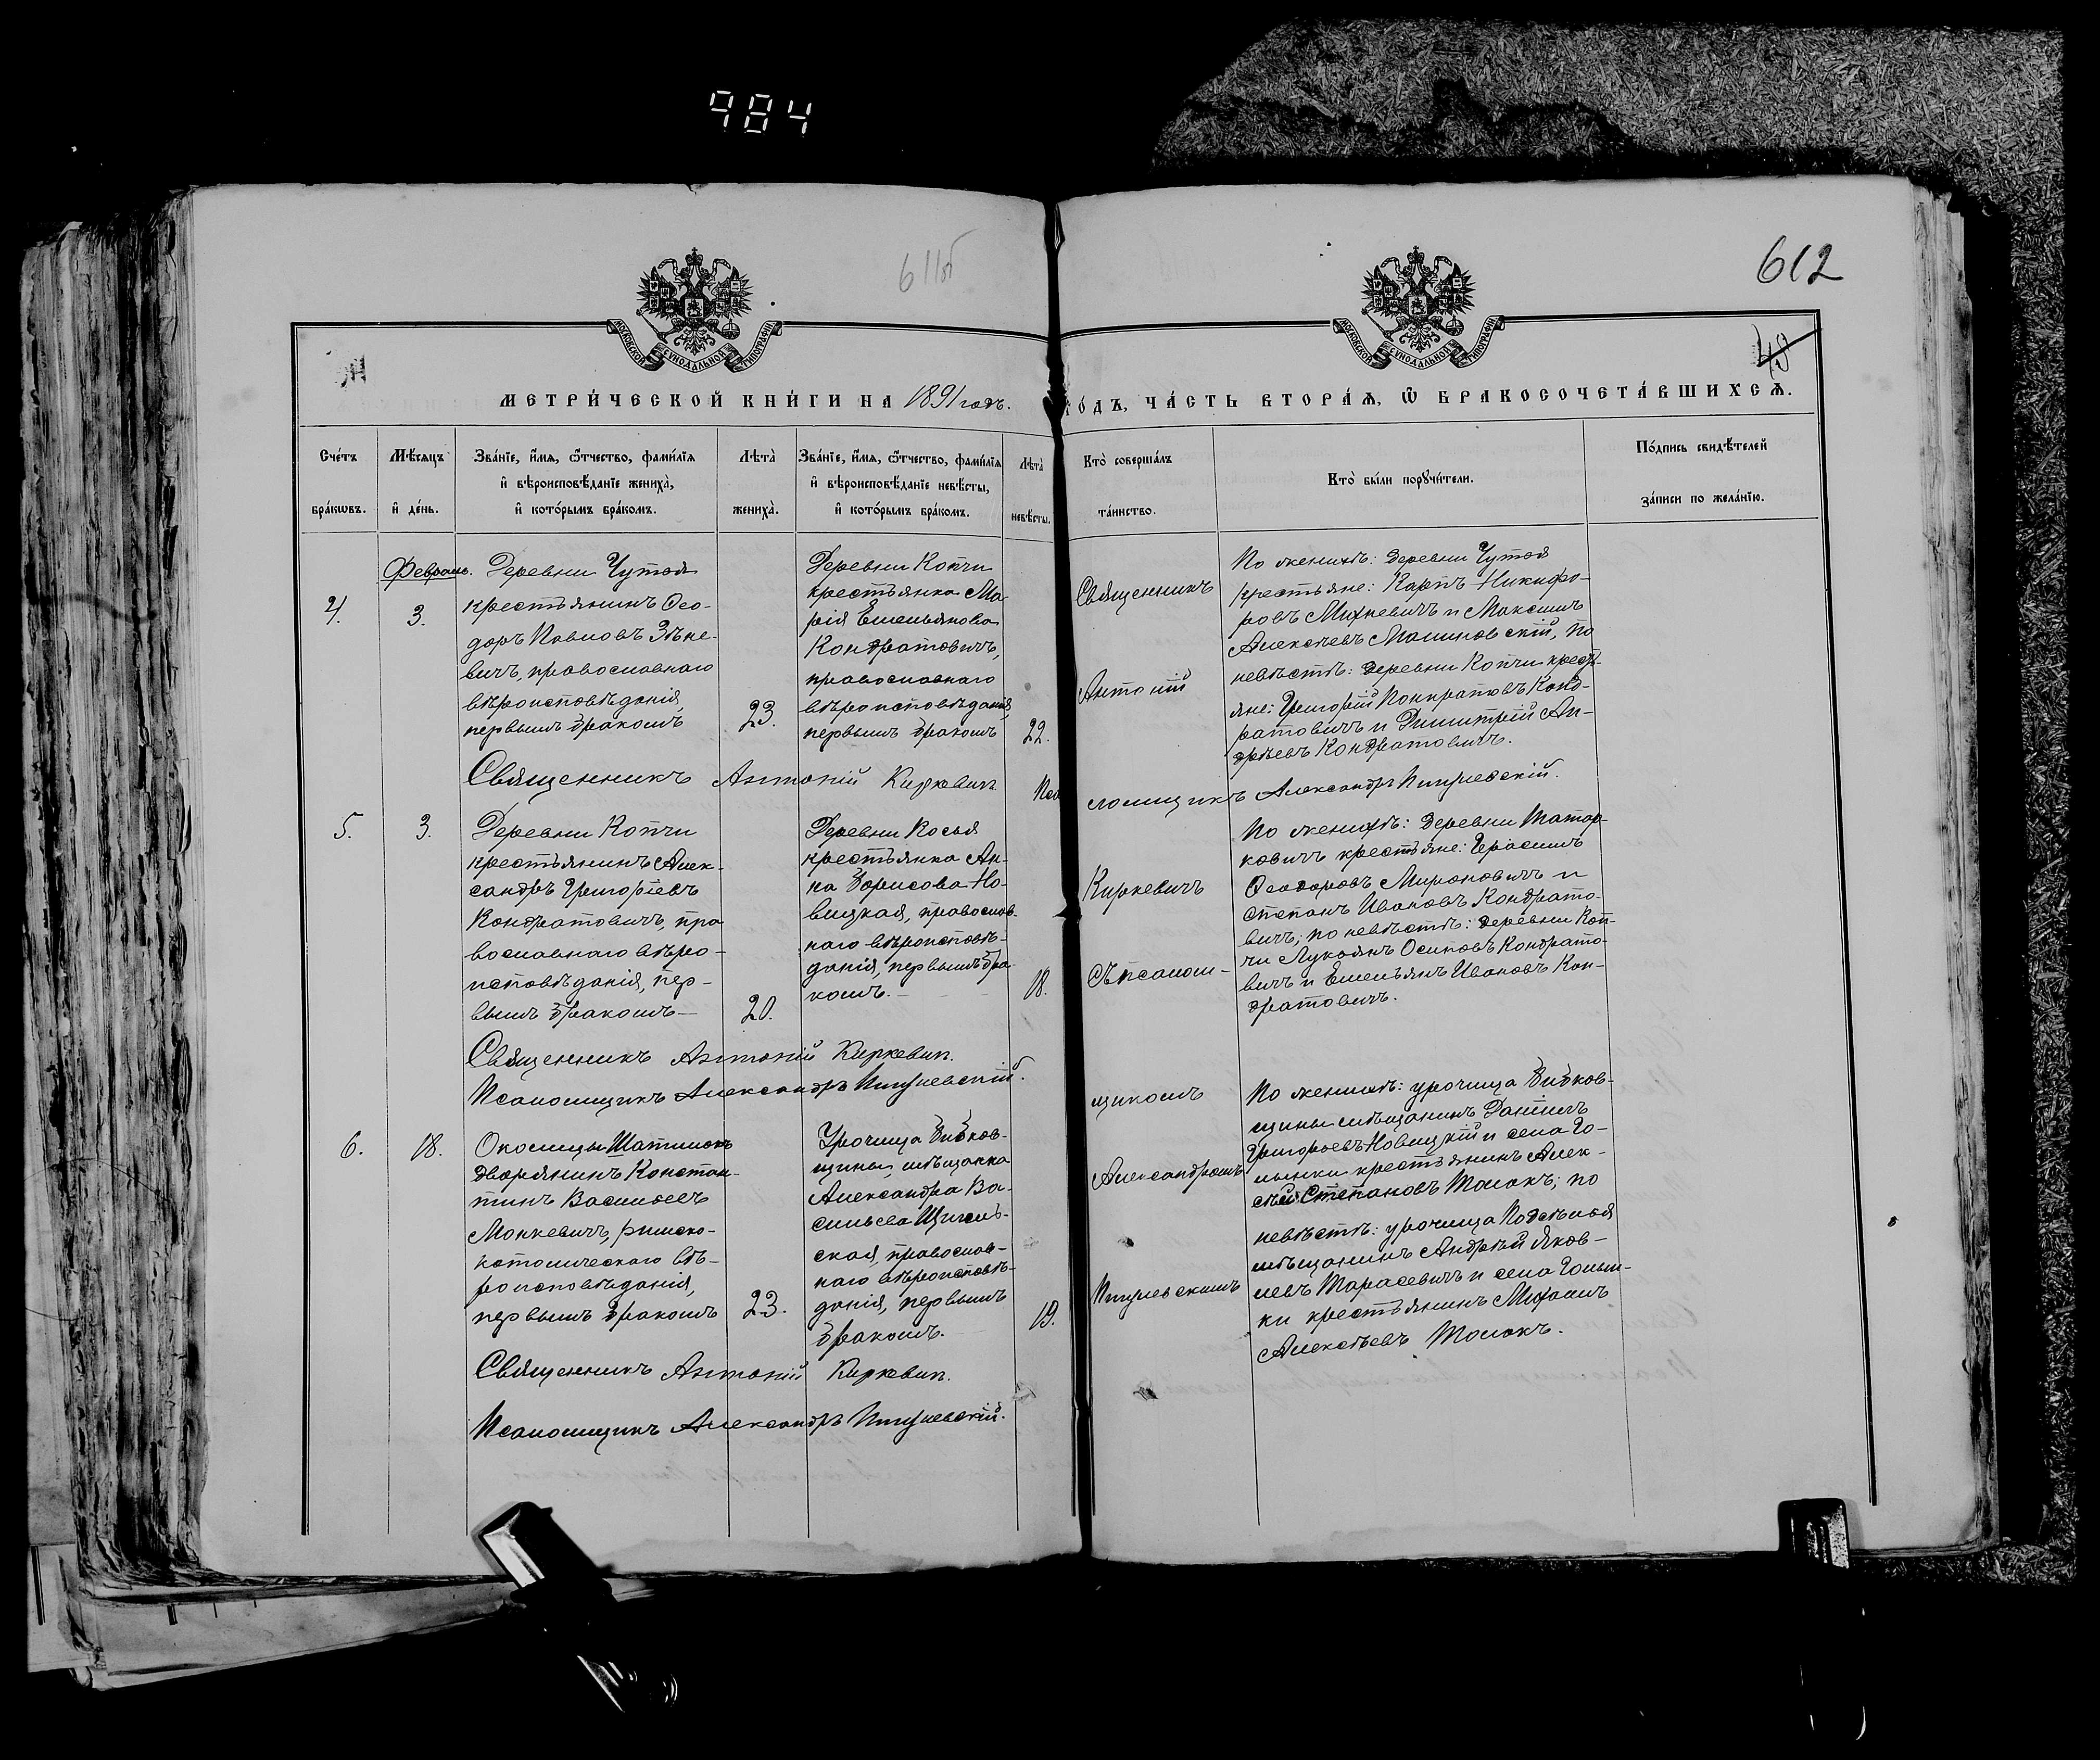 984
611об
612
МОСКОВСКОЙ СѴНОДАЛЬНОЙ ТИПОГРАФІИ
МОСКОВСКОЙ СѴНОДАЛЬНОЙ ТИПОГРАФІИ
МЕТРИ́ЧЕСКОЙ КНИ́ГИ НА 1891 годъ.
ГО́ДЪ, ЧА́СТЬ ВТОРА́Ѧ, Ѡ БРАКОСОЧЕТА́ВШИХСѦ.
Сче́тъ бра́кѡвъ.
Мѣ́сяцъ и́ де́нь.
Зва́нїе, и́мѧ, ѻ́тчество, фами́лїѧ
и́ вѣроисповѣ́данїе жениха̀,
и́ кото́рымъ бра́комъ.
Лѣта̀
жениха̀.
Зва́нїе, и́мѧ, ѻ́тчество, фами́лїѧ
и́ вѣроисповѣ́данїе невѣ́сты,
и́ кото́рымъ бра́комъ.
Лѣта̀
невѣ́сты.
Кто̀ соверша́лъ
та́инство.
Кто̀ бы́ли порꙋчи́тели.
По́дпись свидѣ́телей
за́писи по жела́нїю.
4.
Февраль.
3.
Деревни Чутой
крестьянинъ Ѳео-
доръ Павловъ
вичъ, православнаго
вѣроисповѣданія,
первымъ бракомъ
23.
Деревни Копчи
крестьянка Ма-
рія Емельянова
Кондратовичъ,
православнаго
вѣроисповѣданія,
первымъ бракомъ
22.
Священникъ
Антоній
По женихѣ: деревни Чутой
крестьяне: Карпъ Никифо-
ровъ Михневичъ и Максимъ
Алексѣевъ Малиновскій, по
невѣстѣ: деревни Копчи крестья-
яне: Григорій Панкратовъ Конд-
ратовичъ и Димитрій Ан-
дреевъ Кондратовичъ.
Священникъ Антоній Киркевичъ Псаломщикъ Александръ
5.
3.
Деревни Копчи
крестьянинъ Алек-
сандръ Григоріевъ
Кондратовичъ, пра
вославнаго вѣро-
исповѣданія, пер-
вымъ бракомъ
20.
Деревни Косыя
крестьянка Ан-
на Борисова Но-
вицкая, православ-
наго вѣроисповѣ-
данія, первымъ бра-
комъ.
18.
Киркевичъ
съ псалом-
По женихѣ: деревни Татар-
ковичъ крестьяне: Герасимъ
Ѳеодоровъ Мироновичъ и
Степанъ Ивановъ Кондрато-
вичъ; по невѣстѣ: деревни Коп-
чи Лукьянъ Осиповъ Кондрато-
вичъ и Емельянъ Ивановъ Кон-
дратовичъ.
Священникъ Антоній Киркевичъ.
Псаломщикъ Александръ
6.
18.
Околицы
дворянинъ Констан-
тинъ Васильевъ
Монкевичъ, римско-
католическаго вѣ-
роисповѣданія,
первымъ бракомъ
23.
Урочища Бибков-
щины мѣщанка
Александра Ва-
сильева
ская, православ-
наго вѣроисповѣ-
данія, первымъ
бракомъ.
19.
щикомъ
Александромъ
По женихѣ: урочища Бибков-
щины мѣщанинъ Даніилъ
Григорьевъ Новицкій и села Го-
лынки крестьянинъ Алек-
сѣй Степановъ Толокъ; по
невѣстѣ: урочища
мѣщанинъ Андрей Яков-
левъ Тарасевичъ и села Голын-
ки крестьянинъ Михаилъ
Алексѣевъ Толокъ.
Священникъ Антоній Киркевичъ.
Псаломщикъ Александръ